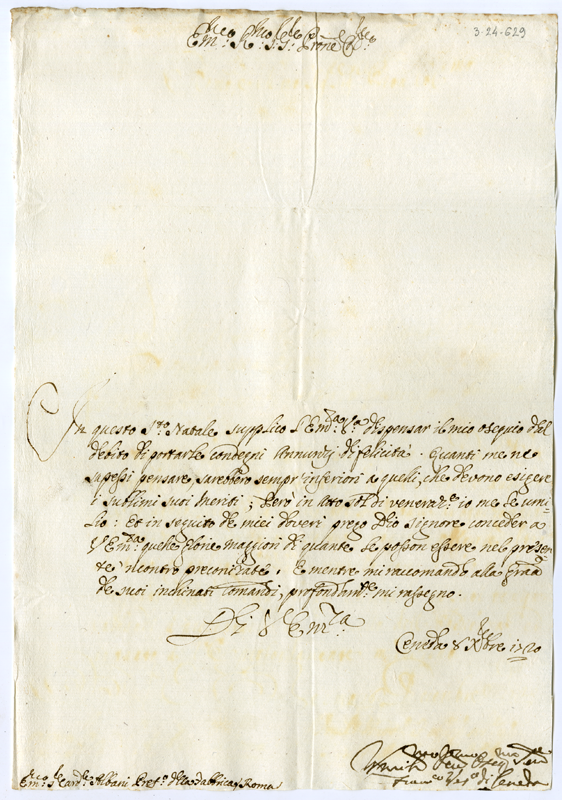 3-24-629
Em.mo e R.mo Sig.r Sig.r P̃rone Col.mo
In questo S.to Natale supplico l'Em.za V.a dispensar il mio osequio dal
debito di portarle condegni Annunzij di felicità. Quanti me ne
sapessi pensare, sarebbero sempr'inferiori a quelli, che devono esigere
i sublimi suoi Meriti; Però in atto di venerat.e io me le umi-
lio: Et in seguito de miei doveri prego Dio Signore conceder a
V Em.za quelle glorie maggiori di quante le posson essere nel presen-
te 'ncontro preconizate. E mentre mi raccomando alla grãa
de suoi inclinati comandi, profondam.te mi rassegno.
Di V Em.za
Ceneda 8 Xbre 1720
Fran.co Vesc.o di Ceneda
Em.mo Sig.r Card.le Albani Pref.o della Fabbrica Roma